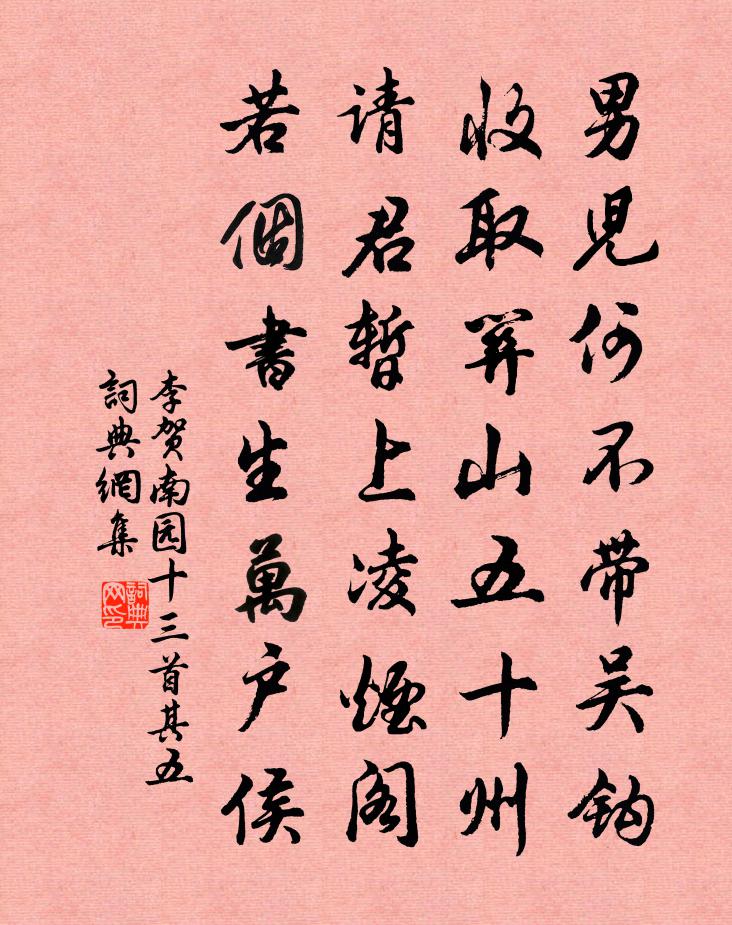 男兒何不带吴钩
收取關山五十州
请君暫上凌煙阁
若個書生萬户侯
李贺南园十三首其五
詞典網集
詞典网印